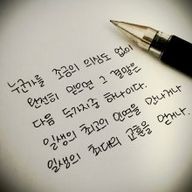 누군가를 조금의 의심도 없이
완전히 믿으면 그 결말은
다음 두가지중 하나이다.
일생의 최고의 인연을 만나거나
일생의 최대의 교훈을 얻거나.